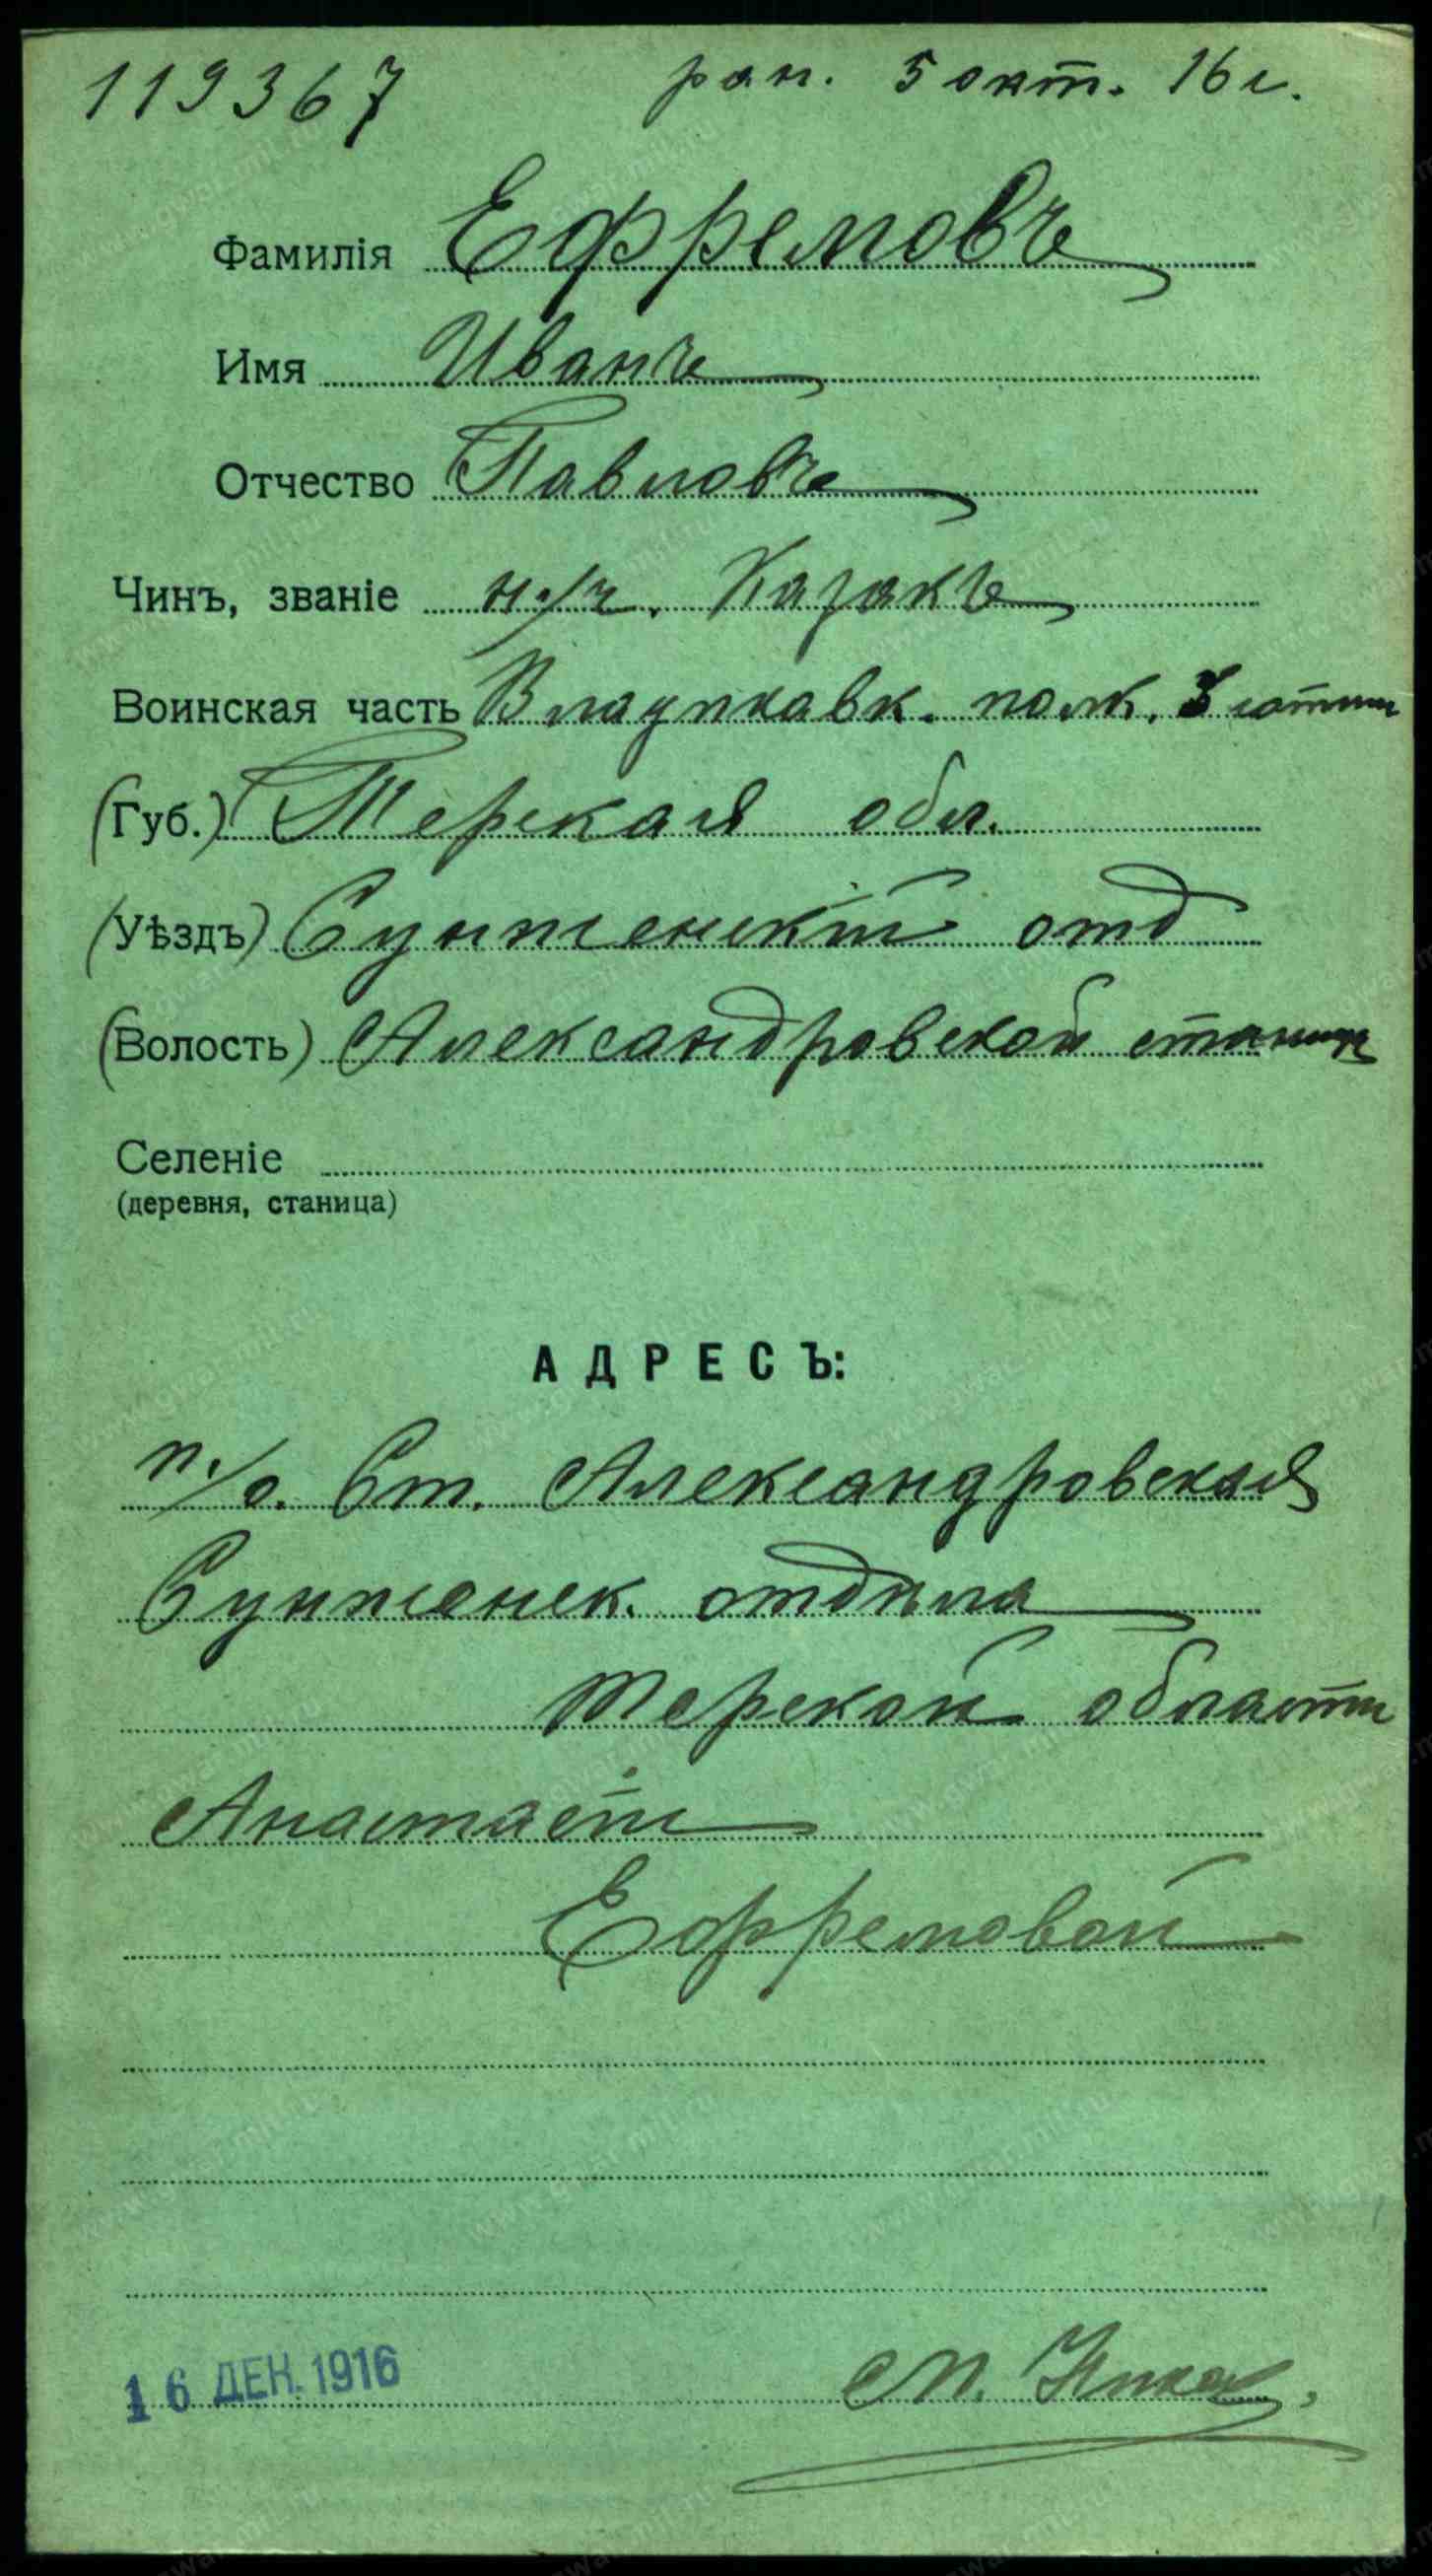 119367 ран. 5 окт. 16 г.
Фамилія Ефремовъ
Имя Иванъ
Отчество Павловъ
Чинъ, званіе н/ч. Казакъ
Воинская часть Владикавк. полк. 3 сотни
(Губ.) Терская обл.
(Уѣздъ) Сунженскій отд
(Волость) Александровской станиц
Селеніе
(деревня, станица)
АДРЕСЪ:
п./о. Ст. Александровская
Сунженск. отдѣла
Терской области
Анастасіи
Ефремовой
16 ДЕК. 1916 М.